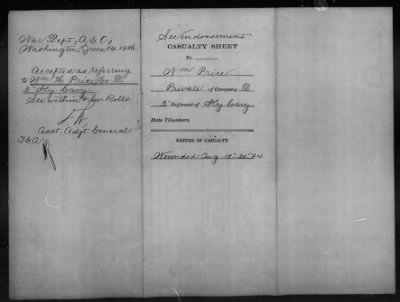 War Dept, A.G.O.,
Washington, June 14 1886.
Accepted as referring
to Wm H. Price Co. D.
2 Ky Cavy
See within & for Rolls
Asst. Adjt. General
See endorsement.
CASUALTY SHEET
To
Wm Price
Private of Company D
2" Regiment of Ky Cavy
State Volunteers.
NATURE OF CASUALTY.
Wounded Aug. 18" 20" 64